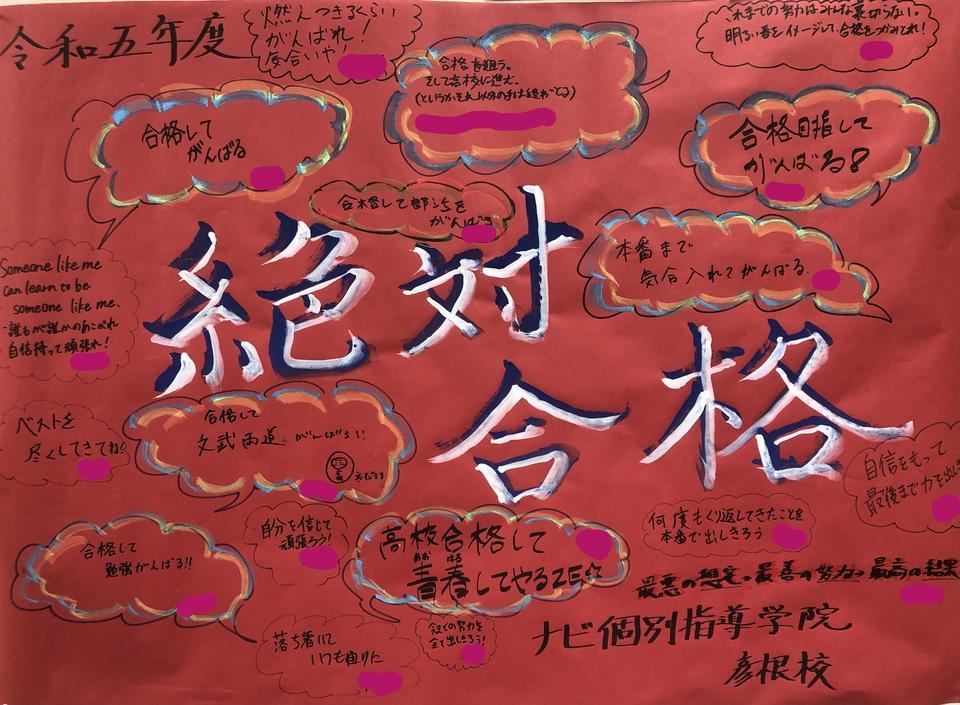 令和五年度
燃えつきるくらい
がんばれ!
度合いや!
合格を狙う。
そして高校に進む。
(というかそれ以外の手は終わっとる)
これまでの努力はみんな裏切らない。
明るい春をイメージして、合格をつかみとれ!
合格して
がんばる
合格目指して
がんばる
合格して部活を
がんばる
本番まで
気合入れてがんばる.
Someone like me
can learn to be
someone like me.
誰もが誰かのあこがれ
自信持って頑張れ!
絶対
合格
ベストを
尽くしてきてね!
合格して
文武両道 がんばる!!
自信をもって
最後まで力を出し
何度もくり返してきたことを
本番で出しきろう
自分を信じて
頑張ろう!
合格して
勉強がんばる!!
高校合格して
あお はる
青春してやるZE☆
最悪の想定→最善の努力→最高の結果
落ち着いて
いつも通りに
全ての努力を
全て出しきろう!
ナビ個別指導学院
彦根校